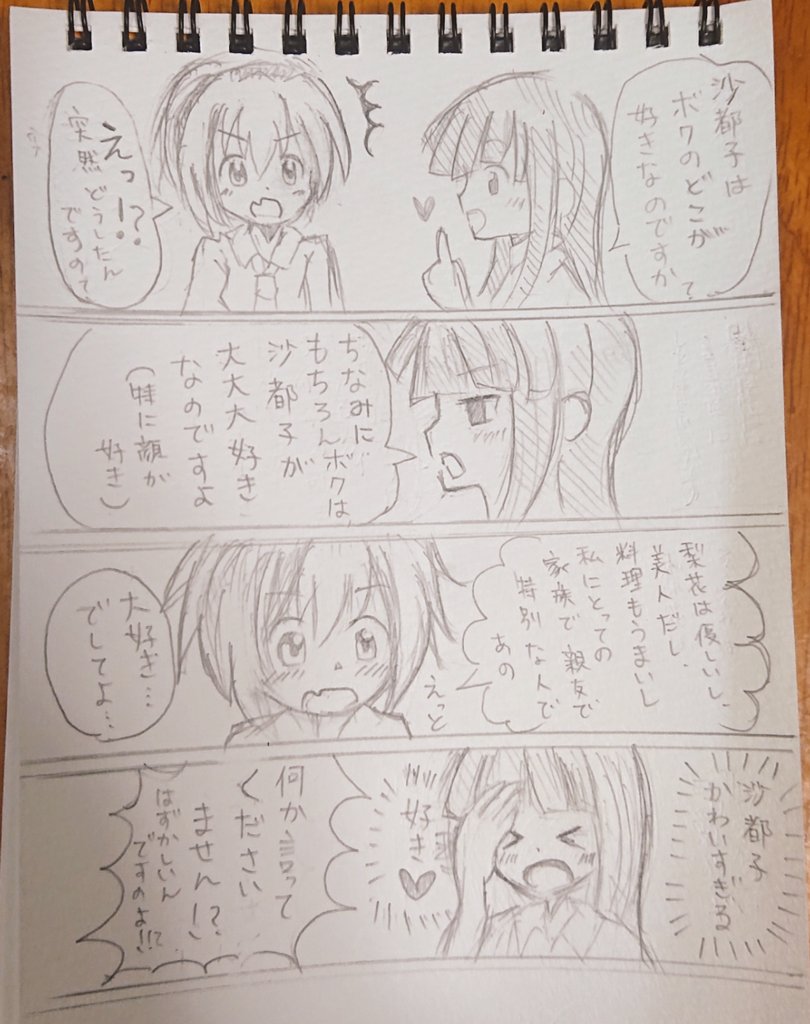 沙都子は
ボクのどこが
好きなのですか?
えっ!?
突然どうしたん
ですので
ちなみに
もちろんボクは
沙都子が
大大大好き
なのですよ
(特に顔が
好き)
梨花は優しいし、
美人だし、
料理もうまいし
私にとっての
家族で親友で
特別な人で
あの
えっと
大好き…
でしてよ…
沙都子
かわいすぎる
好き♥
何か言って
ください
ません!?
はずかしいん
ですのよ!!?